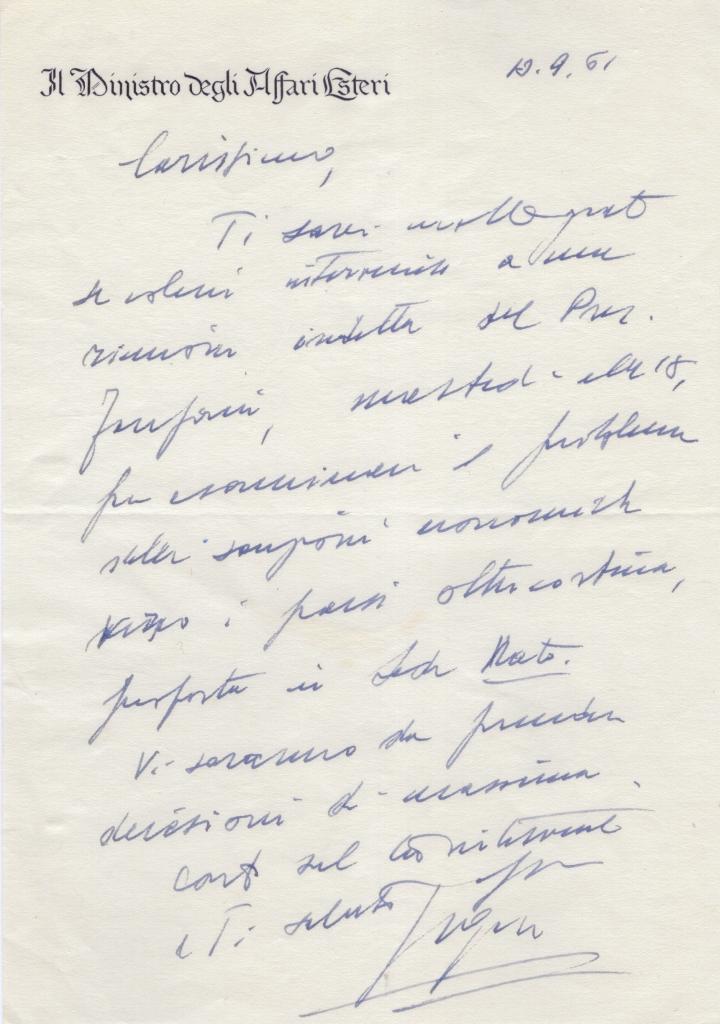 Il Ministro degli Affari Esteri
12.9.61
Carissimo,
Ti sarei molto grato
se volessi intervenire a una
riunione indetta dal Pres.
Fanfani, martedì alle 18,
per esaminare il problema
delle sanzioni economiche
verso i paesi oltrecortina,
proposta in sede Nato.
Vi saranno da prendere
decisioni di massima.
Conto sul
e Ti saluto